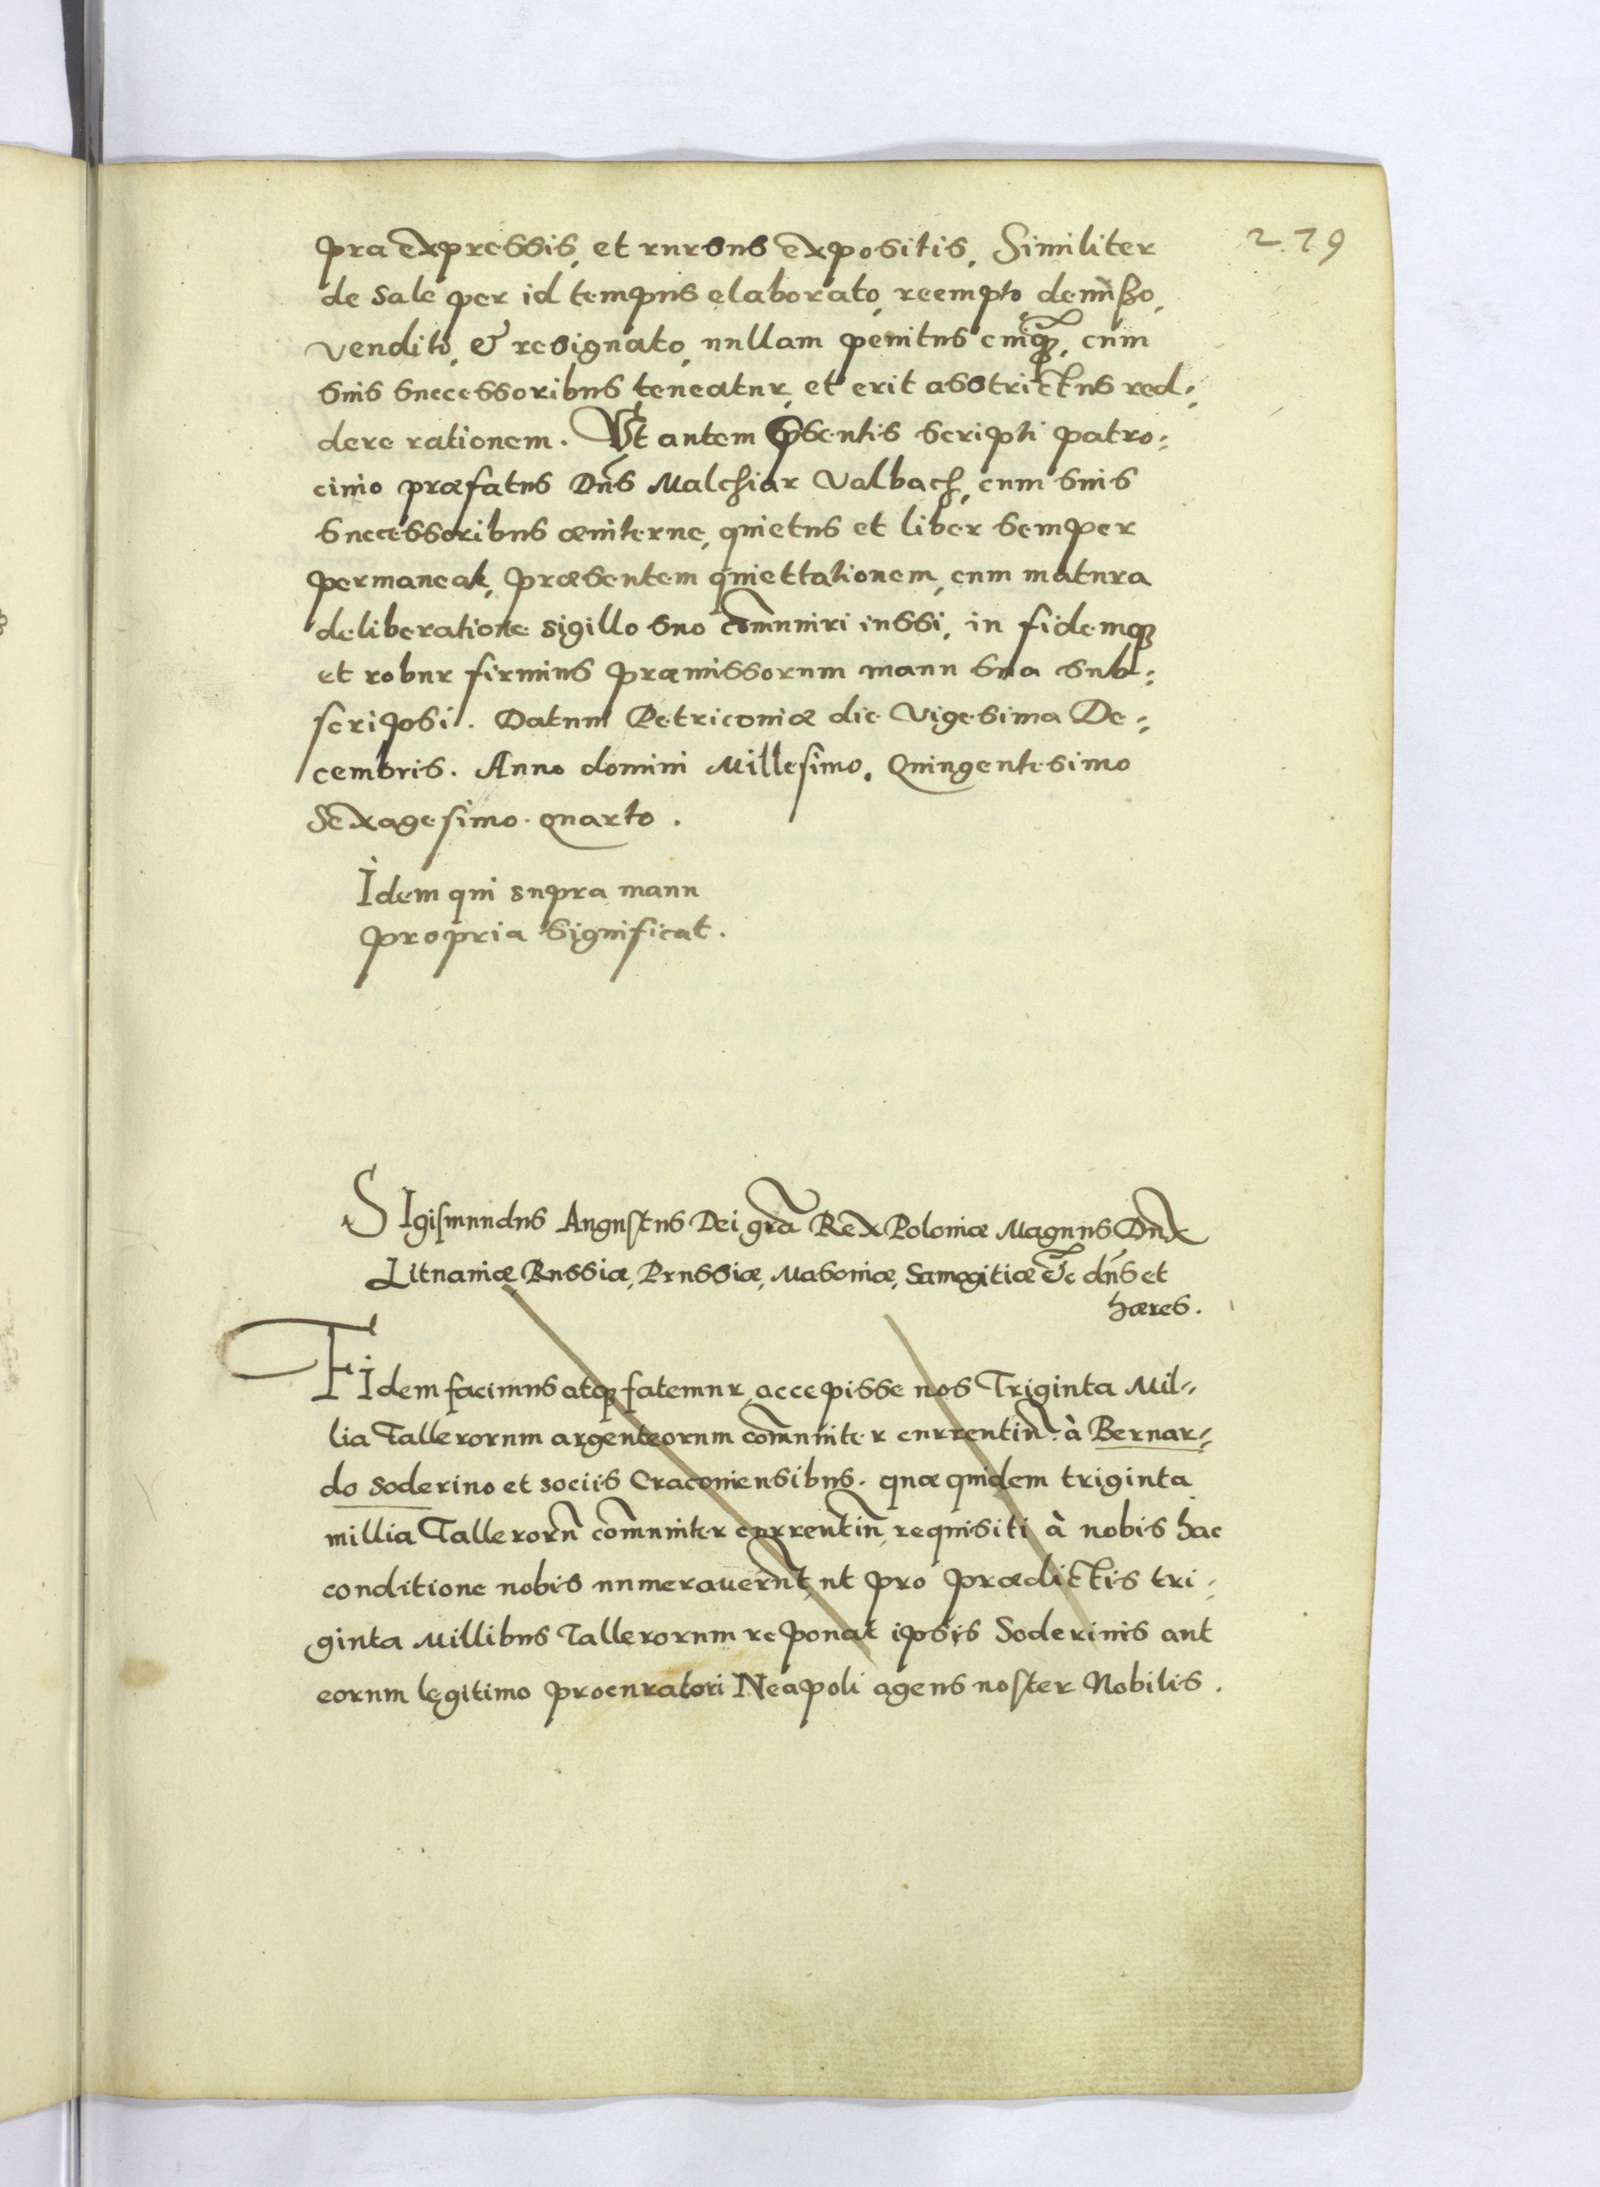 praexpressis, et rursus expositis, Similiter
279
de sale per id tempus elaborato, reempto, demißo,
vendito, & resignato, nullam penitus cuiq3, cum
suis successoribus teneatur, et erit asstrictus red-
dere rationem. Vt autem p̃sentis scripti patro:
cinio præfatus Dñs Malchiar Valbach, cum suis
successoribus æuiterne, quietus et liber semper
permaneat, præsentem quiettationem, cum matura
deliberatione sigillo suo com̃uniri iussi, in fidemq3
et robur firmius præmissorum manu sua sub:
scripsi. Datum Petricouiæ die Vigesima De:
cembris. Anno domini Millesimo, Quingentesimo
Sexagesimo quarto.
Idem qui supra manu
propria significat.
SIgismundus Augustus Dei gr̃a Rex Poloniæ Magnus Dux
Lituaniæ, Russiæ, Prussiæ, Masouiæ, Samogitiæ &c dñs et
hæres.
FIdem facimus atq3 fatemur accepisse nos Triginta Mil-
lia Tallerorum argenteorum com̃uniter currentiũ à Bernar-
do Soderino et sociis Cracouiensibus. quæ quidem triginta
millia Tallerorũ com̃uniter currentiũ, requisiti à nobis hac
conditione nobis numerauer̃nt, ut pro prædictis tri-
ginta Millibus Tallerorum reponat ipsis Soderinis aut
eorum legitimo procuratori Neapoli agens noster Nobilis.